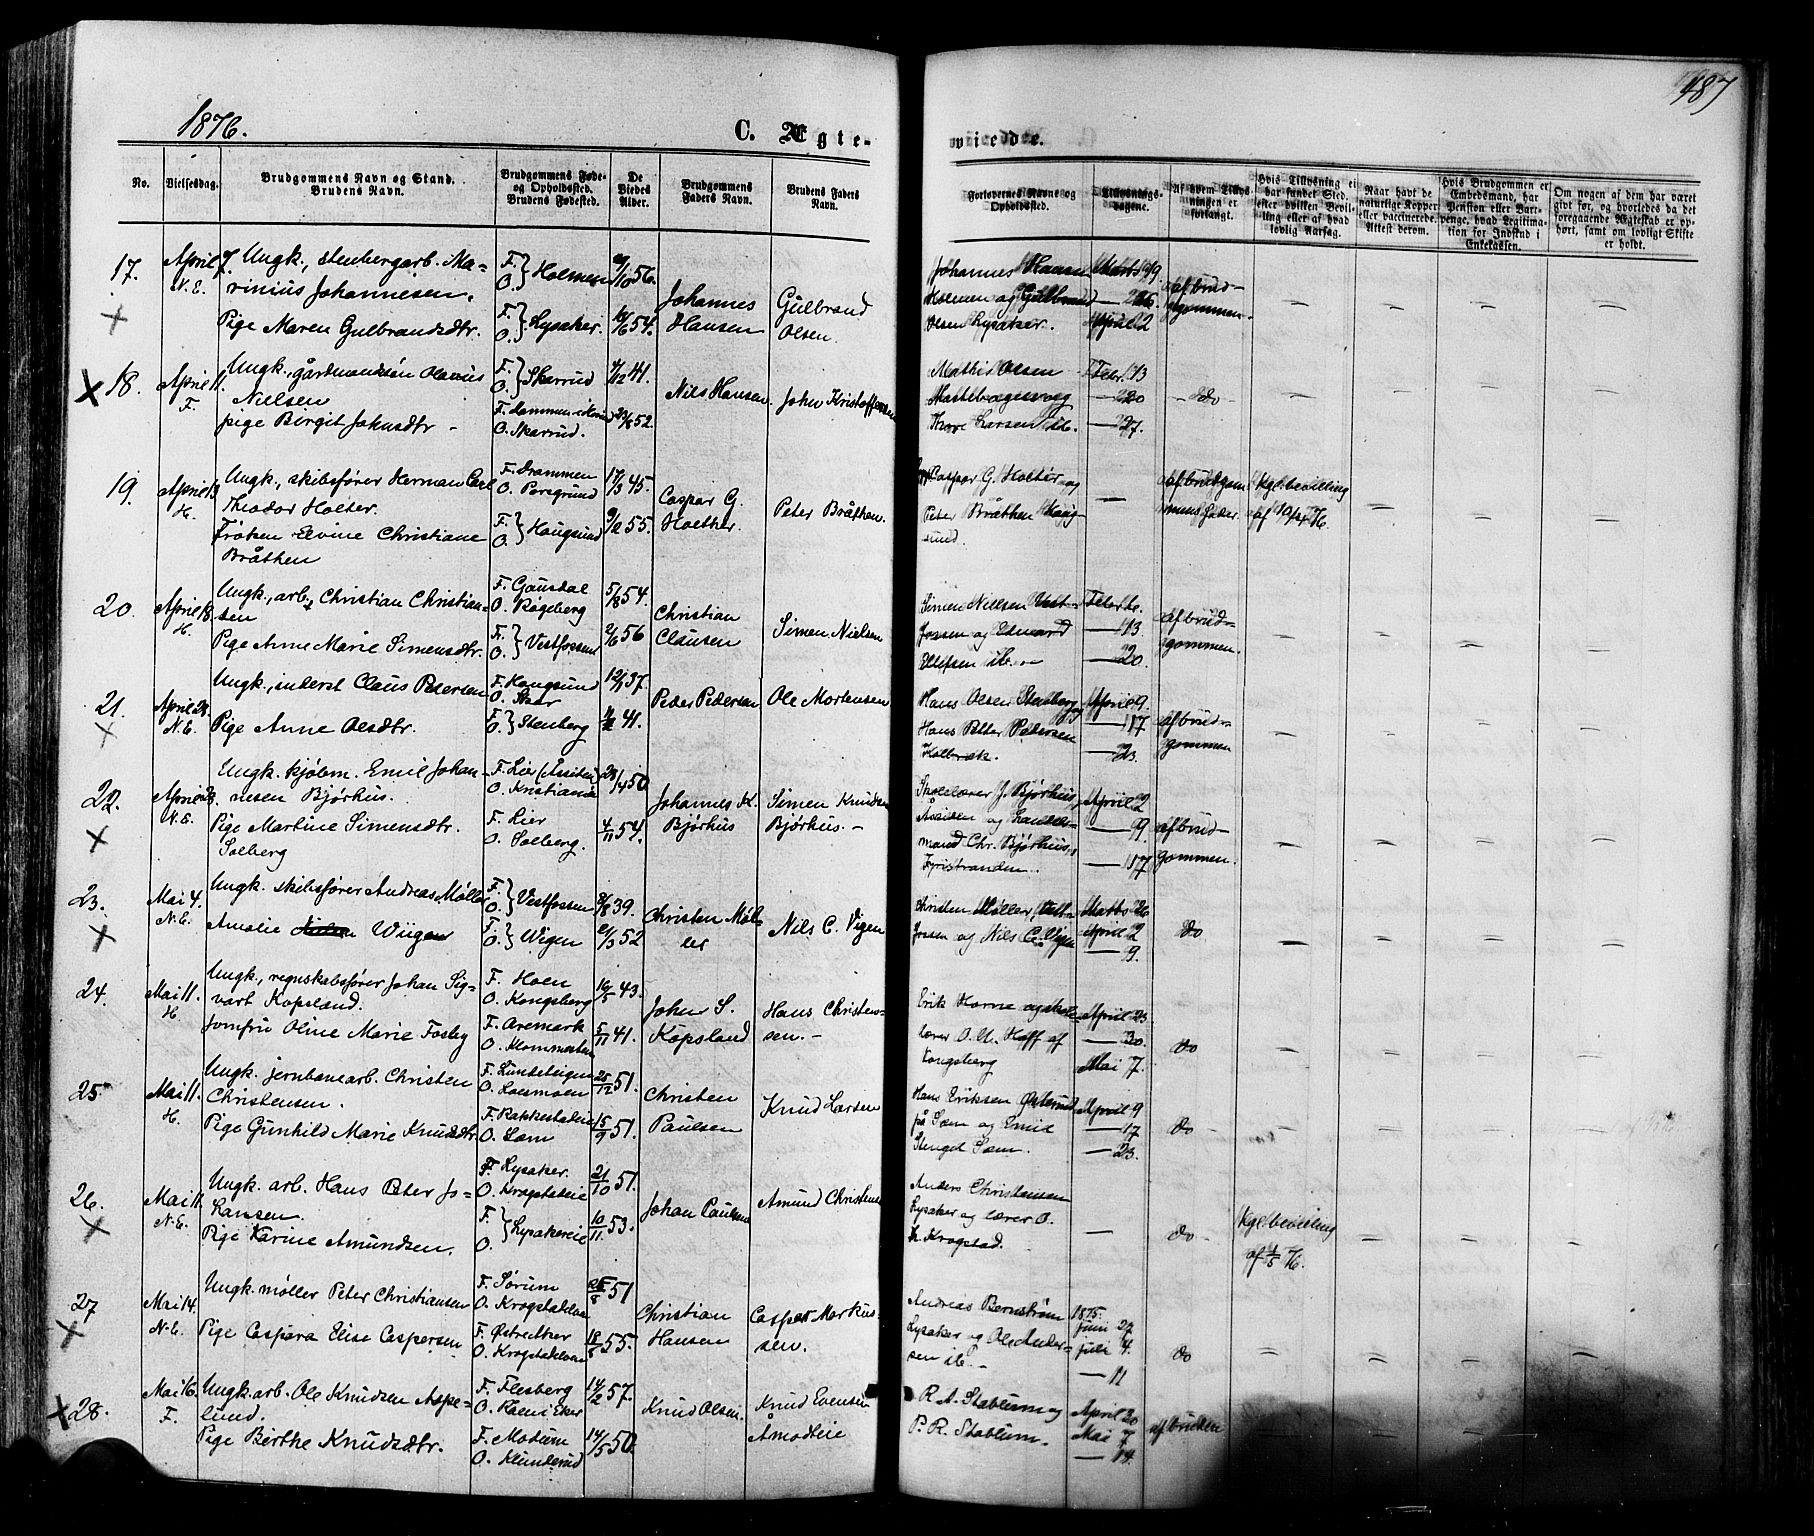 1876.
C. Ægte-
viede.
187
No.
Vielsesdag.
Brudgommens Navn og Stand.
Brudens Navn.
Brudgommens Føde-
og Opholdssted.
Brudens Fødested.
De
Viedes
Alder.
Brudgommens
Faders Navn.
Brudens Faders
Navn.
Forlovernes Navne og
Opholdssted.
Tillysnings-
dagene.
Af hvem Tillys-
ningen er
forlangt.
Hvis Tillysning ei
har fundet Sted,
efter hvilken Bevil-
ling eller af hvad
lovlig Aarsag.
Naar havt de
naturlige Kopper
eller vaccinerede.
Attest derom.
Hvis Brudgommen er
Embedsmand, har
Pension eller Vart-
penge, hvad Legitima-
tion for Indskud i
Enkekassen.
Om nogen af dem har været
gift før, og hvorledes da det
foregaaende Ægteskab er op-
hørt, samt om lovligt Skifte
er holdt.
17.
April 7.
N.E.
Ungk., stenbergarb. Ma-
rinius Johannesen.
Pige Maren Gulbrandsdtr.
F.
O. } Holmen
F.
O. } Lysaker.
56.
54.
Johannes
Hansen
Gulbrand
Olsen.
Johannes Hansen
Holmen og Gulbrand
Olsen Lysaker.
Marts 19.
— 26
April 2
af brud-
gommen.
18.
April 11.
F.
Ungk., gårdmandsön Olavus
Nielsen
pige Birgit Johnsdtr –
F.
O. } Skarrud
O. Skarrud.
41.
52.
Nils Hansen.
John Kristoffersen
Mathis Olsen
Thore Larsen ib.
Febr. 13
— 20
— 27.
– do –
19.
April 13
H.
Ungk., skibsfører Herman Carl
Theodor Holter.
Frøken Elvine Christiane
Bråthen
F. Drammen
O. Porsgrund
F.
O. } Hougsund
17/3 45.
55.
Caspar G.
Holther.
Peter Bråthen.
Caspar G. Holter og
Peter Bråthen Houg-
sund.
—
af brudgom-
mens fader.
Kgl. bevilling
af 10/4 76.
20.
April 18.
H.
Ungk., arb. Christian Christian-
sen
Pige Anne Marie Simensdtr.
F. Gausdal
O. Røgeberg
F.
O. } Vestfossen
5/8 54.
2/6 56
Christian
Clausen
Simen Nielsen
Simen Nielsen Vest-
fossen og Edward
Ellefsen ib. –
Febr. 6.
— 13
— 20.
af brud-
gommen.
21.
April 23.
N.E.
Ungk., inderst Claus Pedersen
Pige Anne Olsdtr.
F. Hougsund
O. Skar
F.
O. } Stenberg
37.
41.
Peder Pedersen
Ole Mortensen
Hans Olsen Stenberg og
Hans Peter Pedersen
Kolbræk.
April 9.
— 17
— 23.
af brud-
gommen
22.
April 23.
N.E.
Ungk. kjølem. Emil Johan-
nesen Bjørhus.
Pige Martine Simensdtr.
Solberg
F. Lier (Åssiden)
O. Kristiania
F. Lier
O. Solberg.
23/4 50
4/11 54.
Johannes K.
Bjørhus
Simen Knudsen
Bjørhus. –
Skolelærer J. Bjørhus,
Åssiden og handels-
mand Chr. Bjørhus,
April 2
— 9.
— 17
af brud-
gommen.
23.
Mai 4.
N.E.
Ungk. skibsfører Andreas Møller
Amalie Wiigen
F.
O. } Vestfossen
F.
O. } Wigen
39.
52
Christen Møl-
ler
Nils C. Vigen
Christen Møller, Vest-
fossen og Nils C. Vigen
Marts 26
April 2
— 9.
do
24.
Mai 11.
H.
Ungk., regnskabsfører Johan Sig-
vart Kopsland.
Jomfru Oline Marie Fosby
F. Hoen
O. Kongsberg
F. Aremark
16/5 43.
5/11 41.
John S.
Kopsland
Hans Christen-
sen. –
Erik Horne og skole-
lærer O. N. Hoff af
Kongsberg
April 23
— 30.
Mai 7.
do
25.
Mai 11.
H.
Ungk. jernbanearb. Christen
Christensen.
Pige Gunhild Marie Knudsdtr.
O. Loesmoen
O. Sem
25/12 51.
15/9 51.
Christen
Paulsen
Knud Larsen
Hans Eriksen Østerud
på Sem og Emil
Stengel Sem.
April 9
— 17
— 23.
do –
26.
Mai 11.
N.E.
Ungk. arb. Hans Peter Jo-
hansen.
Pige Karine Amundsen.
F. Lysaker
O. Krogstadeie
F.
O. } Lysakereie
21/10 51.
10/11 53.
Johan Paulsen
Amund Christensen
Anders Christensen
Lysaker og lærer O.
H. Krogstad.
—
do –
Kgl. bevilling
af 1/5 76.
27
Mai 14.
N.E.
Ungk. møller Peter Christiansen
Pige Caspara Elise Caspersen
F. Sørum
O. Krogstadelven
O. Krogstadelven
51
18/5 55.
Christian
Hansen
Casper Markus-
sen.
Andreas Bernstrøm
Lysaker og Ole Ander-
sen ib. –
1875.
Juni 27
Juli 4.
— 11
do
28.
Mai 16.
F.
Ungk. arb. Ole Knudsen Aspe-
lund.
Pige Berthe Knudsdtr.
F. Flesberg
F. Modum
O. Klunderud
14/2 57.
14/5 50.
Knud Olsen.
Knud Evensen
Åmodteie
R. A. Stablum og
P. R. Stablum.
April 20
Mai 7
— 14.
af bruden